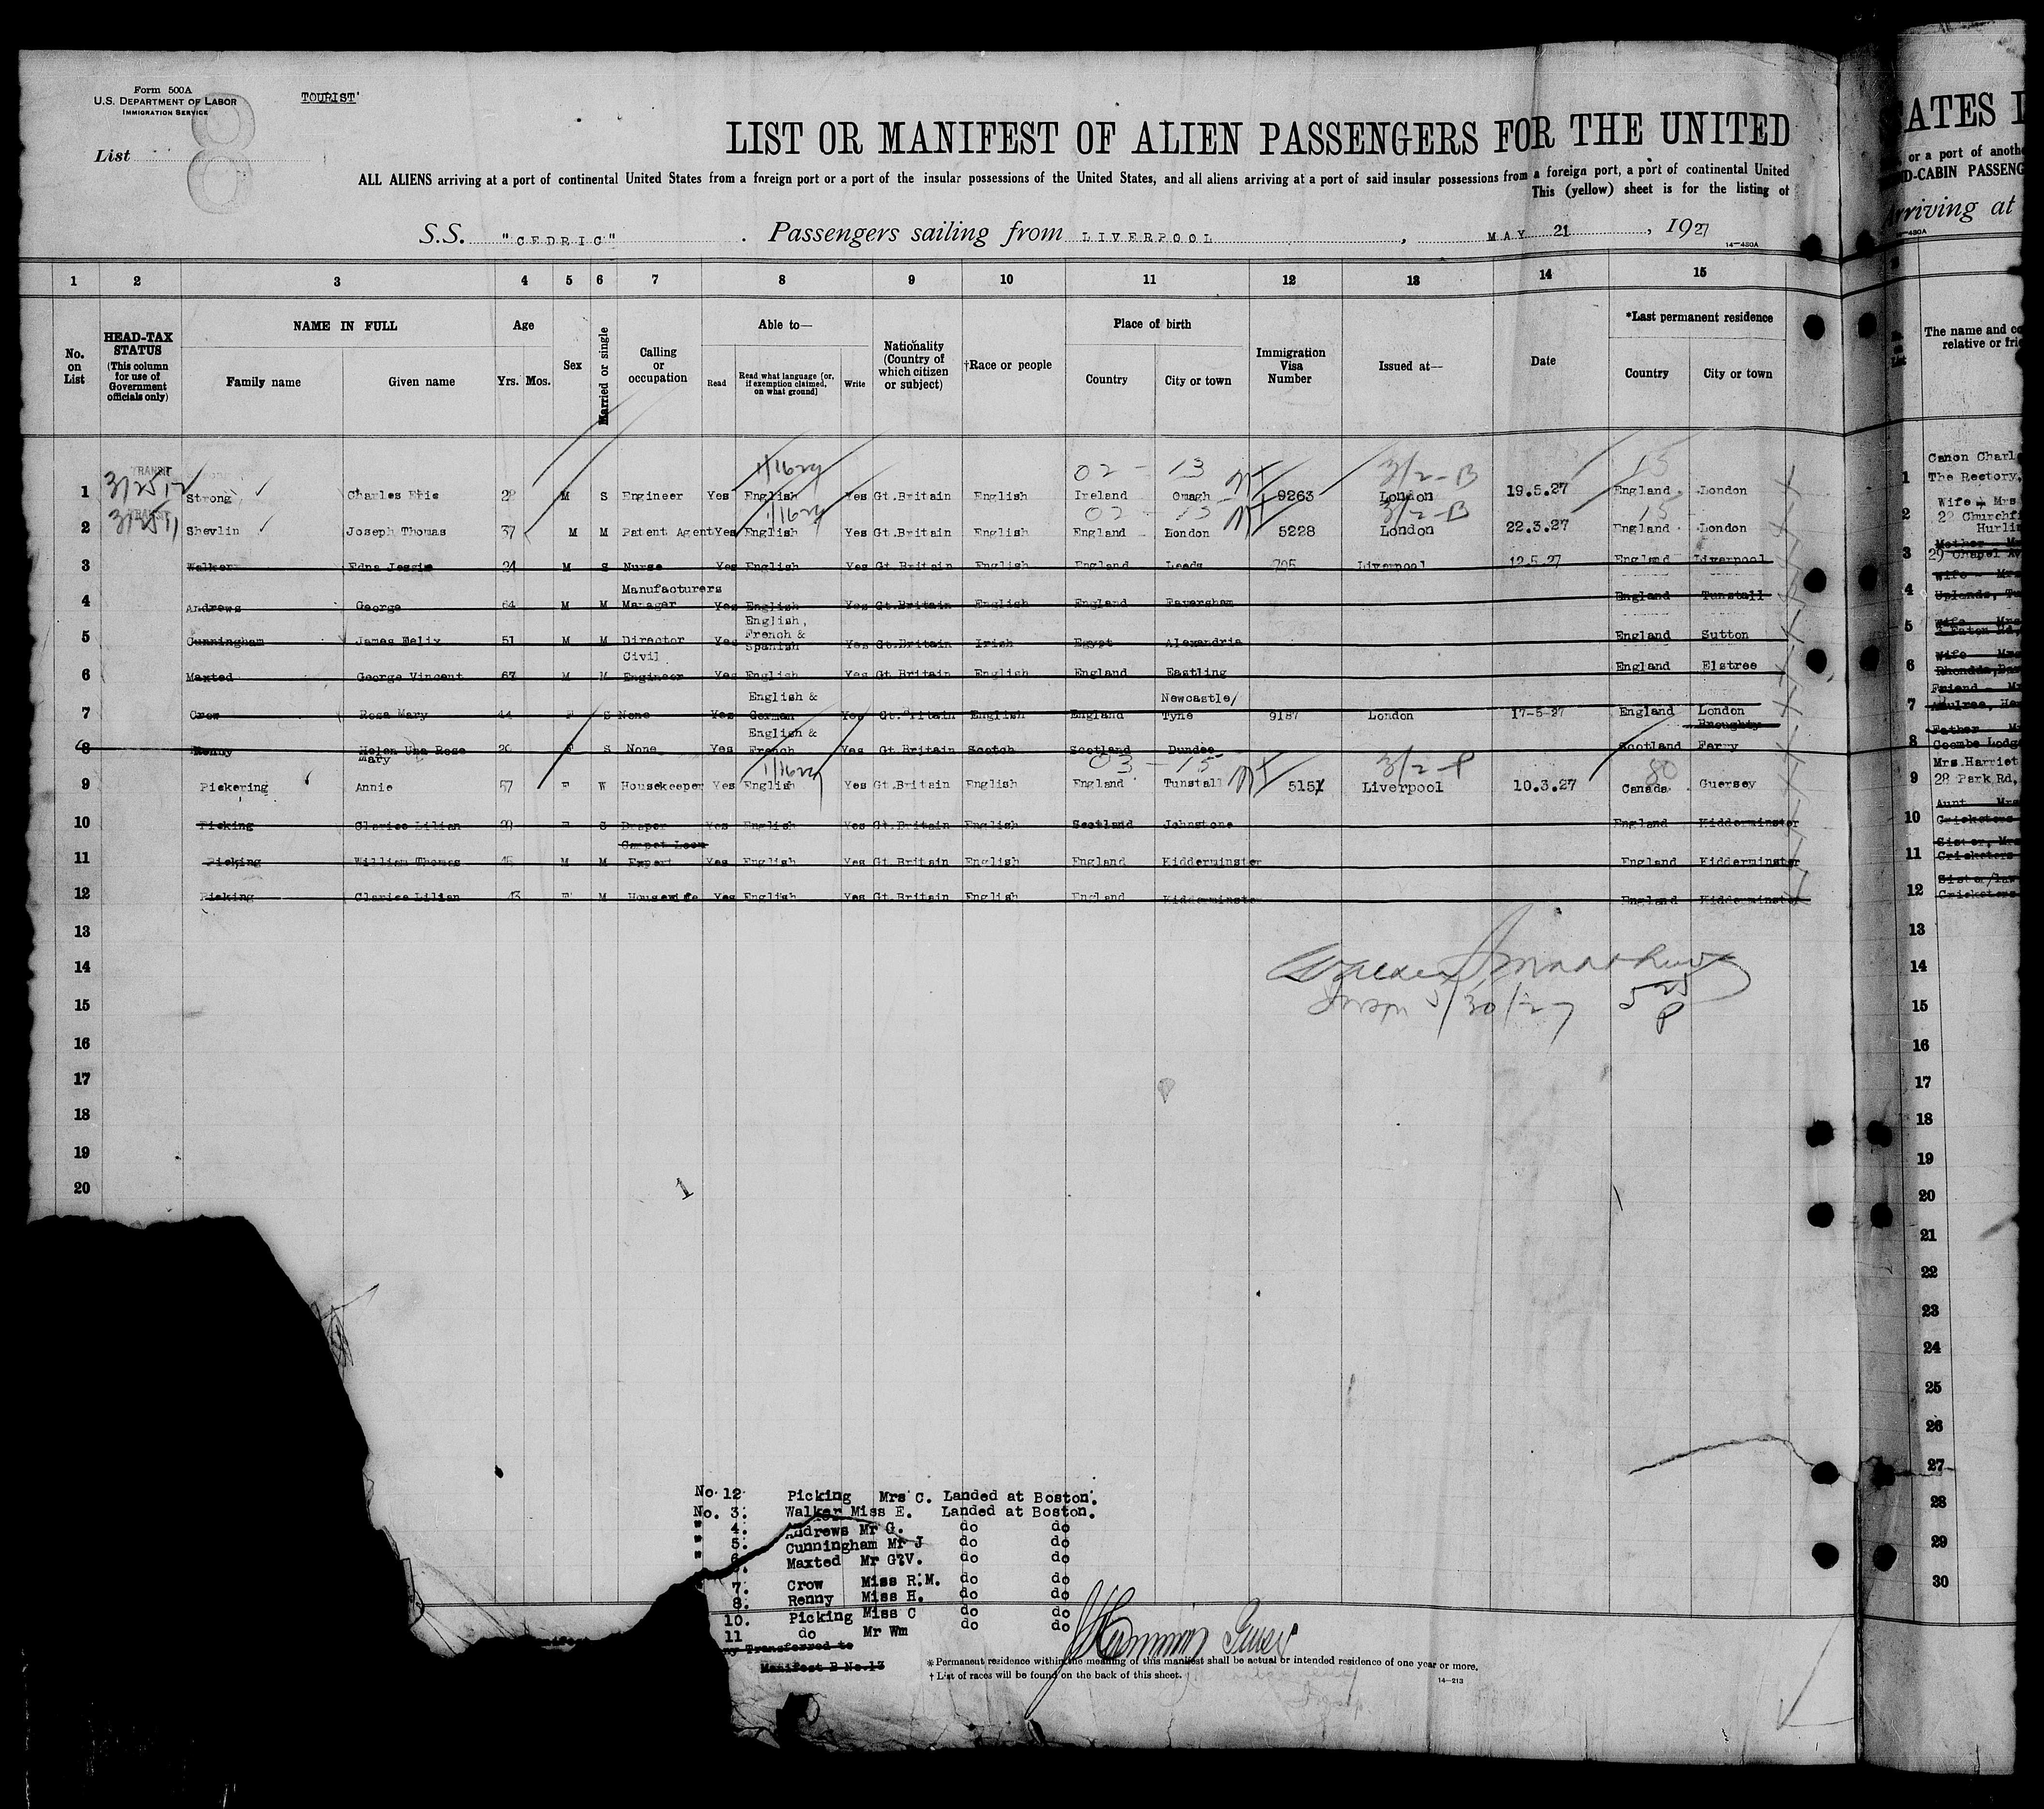 Form 500A
U.S. DEPARTMENT OF LABOR
IMMIGRATION SERVICE
TOURIST
8
List
LIST OR MANIFEST OF ALIEN PASSENGERS FOR THE UNITED
ALL ALIENS arriving at a port of continental United States from a foreign port or a port of the insular possessions of the United States, and all aliens arriving at a port of said insular possessions from a foreign port, a port of continental United
This (yellow) sheet is for the listing of
S.S. "CEDRIC". Passengers sailing from LIVERPOOL, MAY 21, 1927
14-480A
1 2 3 4 5 6 7 8 9 10 11 12 13 14 15
No. on List
HEAD-TAX STATUS (This column for use of Government officials only)
NAME IN FULL
Family name Given name
Age
Yrs. Mos.
Sex
Married or single
Calling or occupation
Able to—
Read
Read what language [or, if exemption claimed, on what ground]
Write
Nationality (Country of which citizen or subject)
†Race or people
Place of birth
Country City or town
Immigration Visa Number
Issued at—
Date
*Last permanent residence
Country City or town
TRANSIT 02 - 13 3/2-B 15
1 Strong Charles Eric 28 M S Engineer Yes English Yes Gt.Britain English Ireland Omagh 9263 London 19.5.27 England London
TRANSIT 02 - 13 3/2-B 15
2 Shevlin Joseph Thomas 37 M M Patent Agent Yes English Yes Gt.Britain English England London 5228 London 22.3.27 England London
3 Walker Edna Jessie 24 M S Nurse Yes English Yes Gt.Britain English England Leeds 705 Liverpool 12.5.27 England Liverpool
4 Andrews George 64 M M Manufacturers Manager Yes English Yes Gt.Britain English England Faversham England Tunstall
5 Cunningham James Felix 51 M M Director Yes English, French & Spanish Yes Gt.Britain Irish Egypt Alexandria England Sutton
6 Maxted George Vincent 67 M M Civil Engineer Yes English Yes Gt.Britain English England Eastling England Elstree
7 Crow Rosa Mary 44 F S None Yes English & German Yes Gt.Britain English England Newcastle/Tyne 9187 London 17-5-27 England London
8 Renny Helen Una Rose Mary 20 F S None Yes English & French Yes Gt.Britain Scotch Scotland Dundee Scotland Broughty Ferry
03 - 15 3/2-P 80
9 Pickering Annie 57 F W Housekeeper Yes English Yes Gt.Britain English England Tunstall 5151 Liverpool 10.3.27 Canada Guersey
10 Picking Clarice Lilian 20 F S Draper Yes English Yes Gt.Britain English Scotland Johnstone England Kidderminster
11 Picking William Thomas 45 M M Carpet Loom Expert Yes English Yes Gt.Britain English England Kidderminster England Kidderminster
12 Picking Clarice Lilian 43 F M Housewife Yes English Yes Gt.Britain English England Kidderminster England Kidderminster
13
14
5/30/27 5 25 P
15
16
17
18
19
20
No. 12 Picking Mrs C. Landed at Boston.
No. 3. Walker Miss E. Landed at Boston.
" 4. Andrews Mr G. do do
" 5. Cunningham Mr J do do
" 6. Maxted Mr G.V. do do
7. Crow Miss R.M. do do
8. Renny Miss H. do do
10. Picking Miss C do do
11 do Mr Wm do do
Transferred to
Manifest B No.13
*Permanent residence within the meaning of this manifest shall be actual or intended residence of one year or more.
†List of races will be found on the back of this sheet.
14-213
TATES
or a port of anothe
ND-CABIN PASSENG
Arriving at
The name and co
relative or frie
1 Canon Charl
The Rectory,
2 Wife - Mrs
22 Churchfi
Hurlin
3 Mother
29 Chapel
4 Wife - Mrs
Uplands,
5 Wife Mrs
Eaton Rd,
6 Wife Mrs
7 Friend - M
8 Father
Coombe Lodge
9 Mrs.Harriet
28 Park Rd,
10 Aunt Mrs
Cricketers
11 Sister, Mrs
Cricketers
12 Sister/law
Cricketers
13
14
15
16
17
18
19
20
21
22
23
24
25
26
27
28
29
30